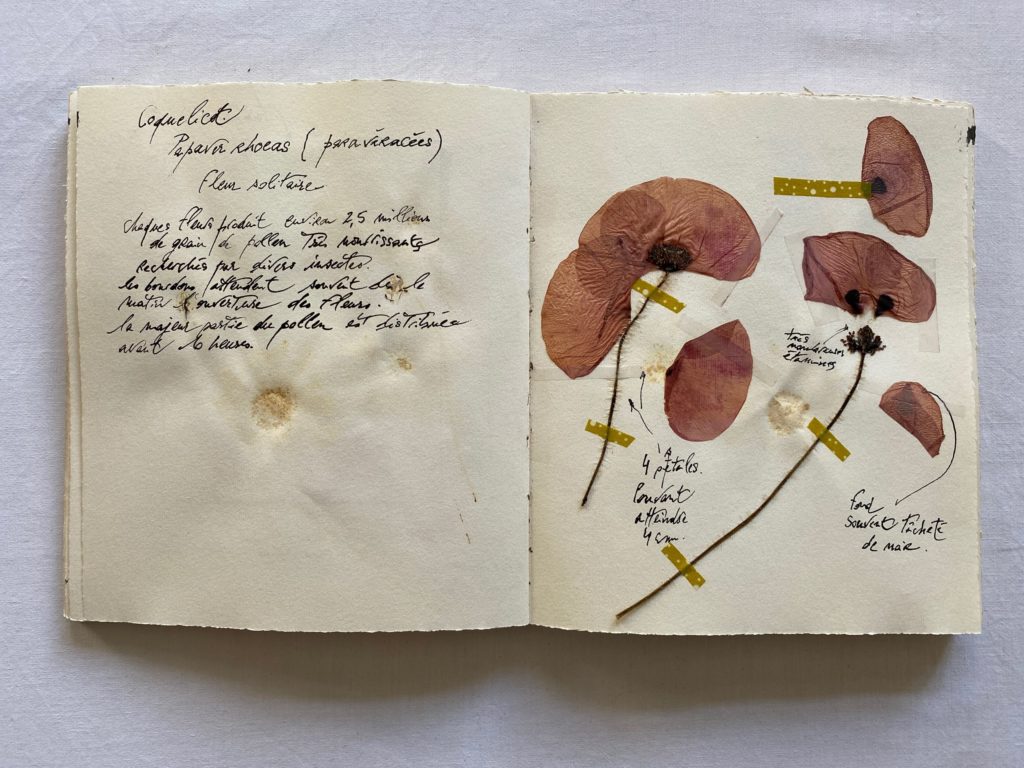 Coquelicot
Papaver rhoeas ( papavéracées)
Fleur solitaire
chaques fleurs produit environ 2,5 millions
de grain de pollen Très nourrissants
recherchés par divers insectes.
les bourdons attendent souvent le
matin l'ouverture des fleurs.
la majeur partie du pollen est distribuée
avant 10 heures.
très
nombreuses
étamines
4 pétales.
Pouvant
atteindre
4 cm.
fond
souvent tâcheté
de noir.